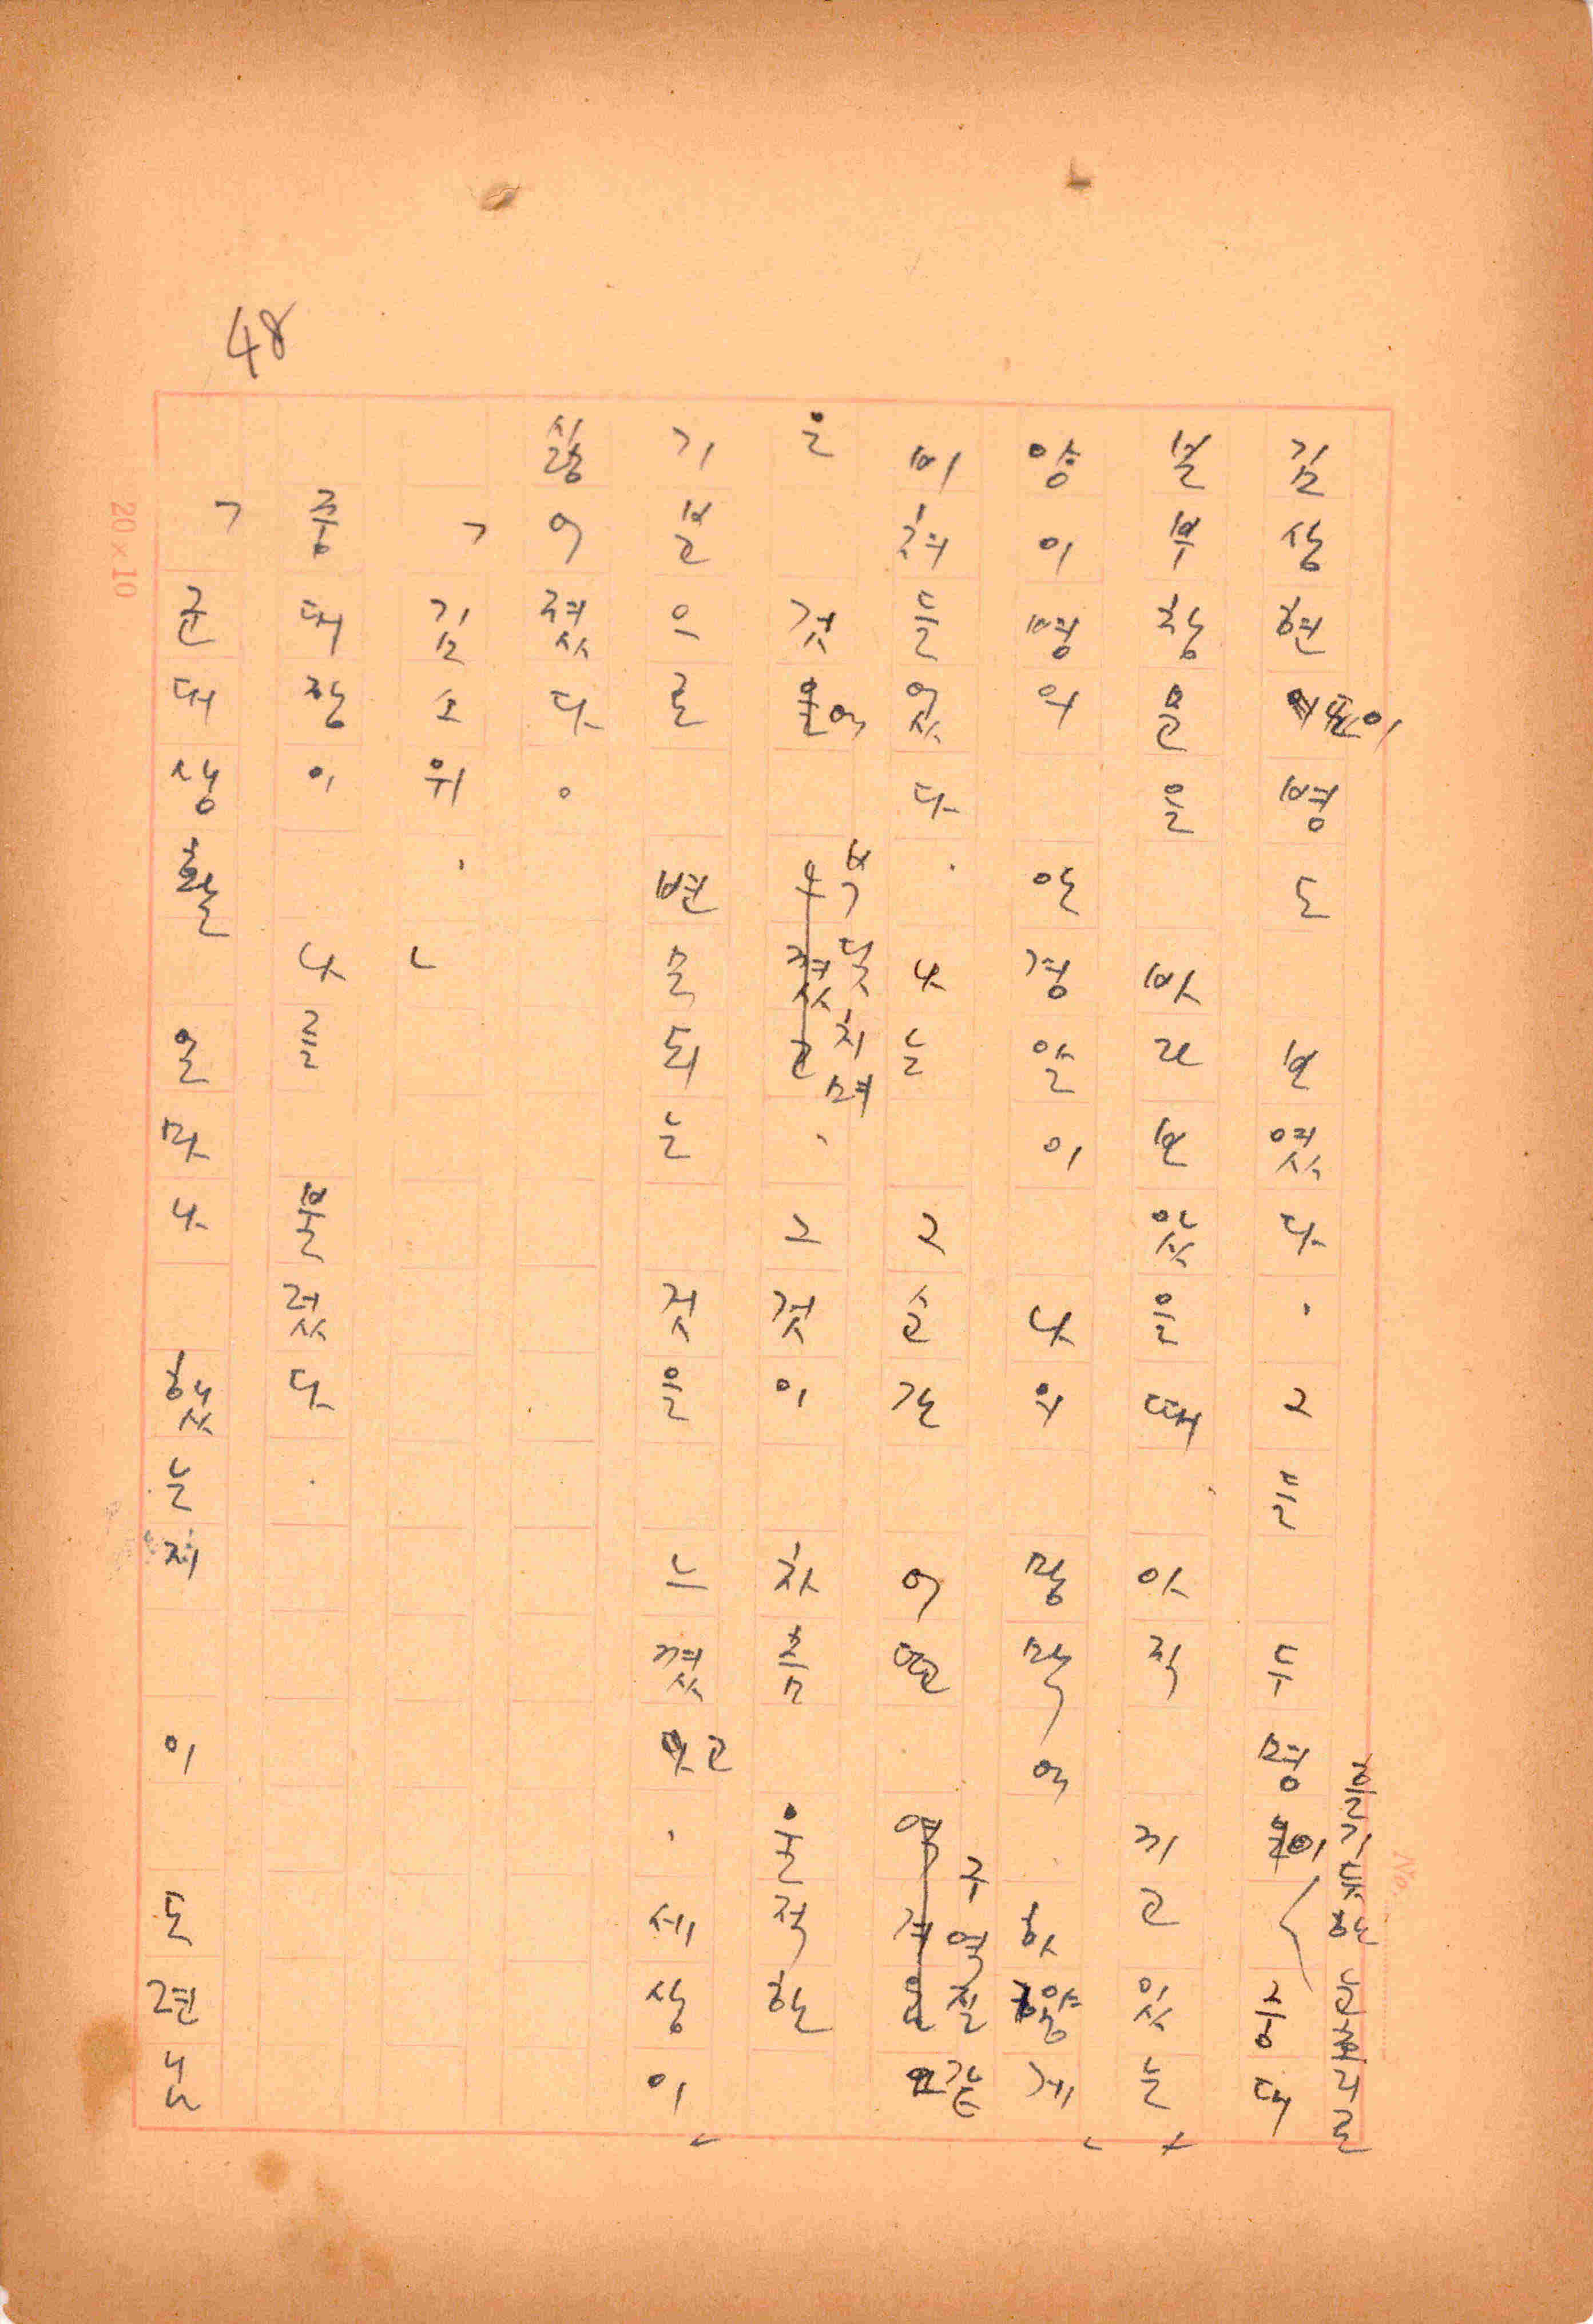 48
김상현이병도 보였다. 그들 두명이 흘기듯한 눈초리로 중대
본부창문을 바라보았을때 아직 끼고있는
양이병의 안경알이 나의 망막에 하얗게
비쳐들었다. 나는 그순간 어떤 구역질같
은 것에 북받치며, 그것이 차츰 울적한
기분으로 변모되는 것을 느꼈고, 세상이
싫어졌다。
「김소위.」
중대장이 나를 불렀다.
「군대생활 얼마나 했는지 이 도련님
20×10
No.